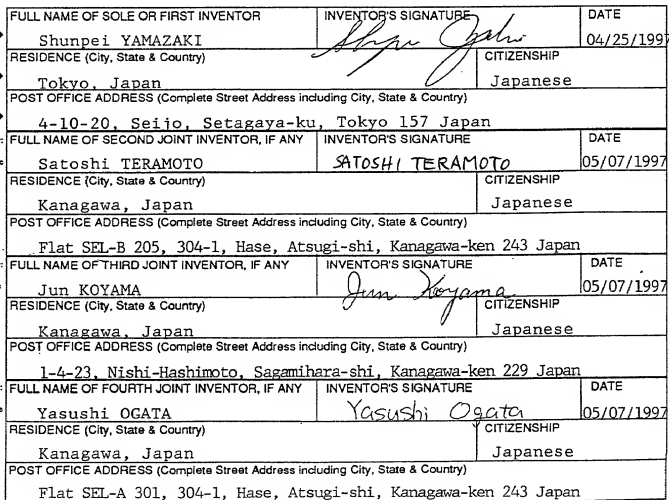 FULL NAME OF SOLE OR FIRST INVENTOR INVENTOR'S SIGNATURE DATE
Shunpei YAMAZAKI 04/25/1997
RESIDENCE (City, State & Country) CITIZENSHIP
Tokyo, Japan Japanese
POST OFFICE ADDRESS (Complete Street Address including City, State & Country)
4-10-20, Seijo, Setagaya-ku, Tokyo 157 Japan
FULL NAME OF SECOND JOINT INVENTOR, IF ANY INVENTOR'S SIGNATURE DATE
Satoshi TERAMOTO SATOSHI TERAMOTO 05/07/1997
RESIDENCE (City, State & Country) CITIZENSHIP
Kanagawa, Japan Japanese
POST OFFICE ADDRESS (Complete Street Address including City, State & Country)
Flat SEL-B 205, 304-1, Hase, Atsugi-shi, Kanagawa-ken 243 Japan
FULL NAME OF THIRD JOINT INVENTOR, IF ANY INVENTOR'S SIGNATURE DATE
Jun KOYAMA Jun Koyama 05/07/1997
RESIDENCE (City, State & Country) CITIZENSHIP
Kanagawa, Japan Japanese
POST OFFICE ADDRESS (Complete Street Address including City, State & Country)
1-4-23, Nishi-Hashimoto, Sagamihara-shi, Kanagawa-ken 229 Japan
FULL NAME OF FOURTH JOINT INVENTOR, IF ANY INVENTOR'S SIGNATURE DATE
Yasushi OGATA Yasushi Ogata 05/07/1997
RESIDENCE (City, State & Country) CITIZENSHIP
Kanagawa, Japan Japanese
POST OFFICE ADDRESS (Complete Street Address including City, State & Country)
Flat SEL-A 301, 304-1, Hase, Atsugi-shi, Kanagawa-ken 243 Japan